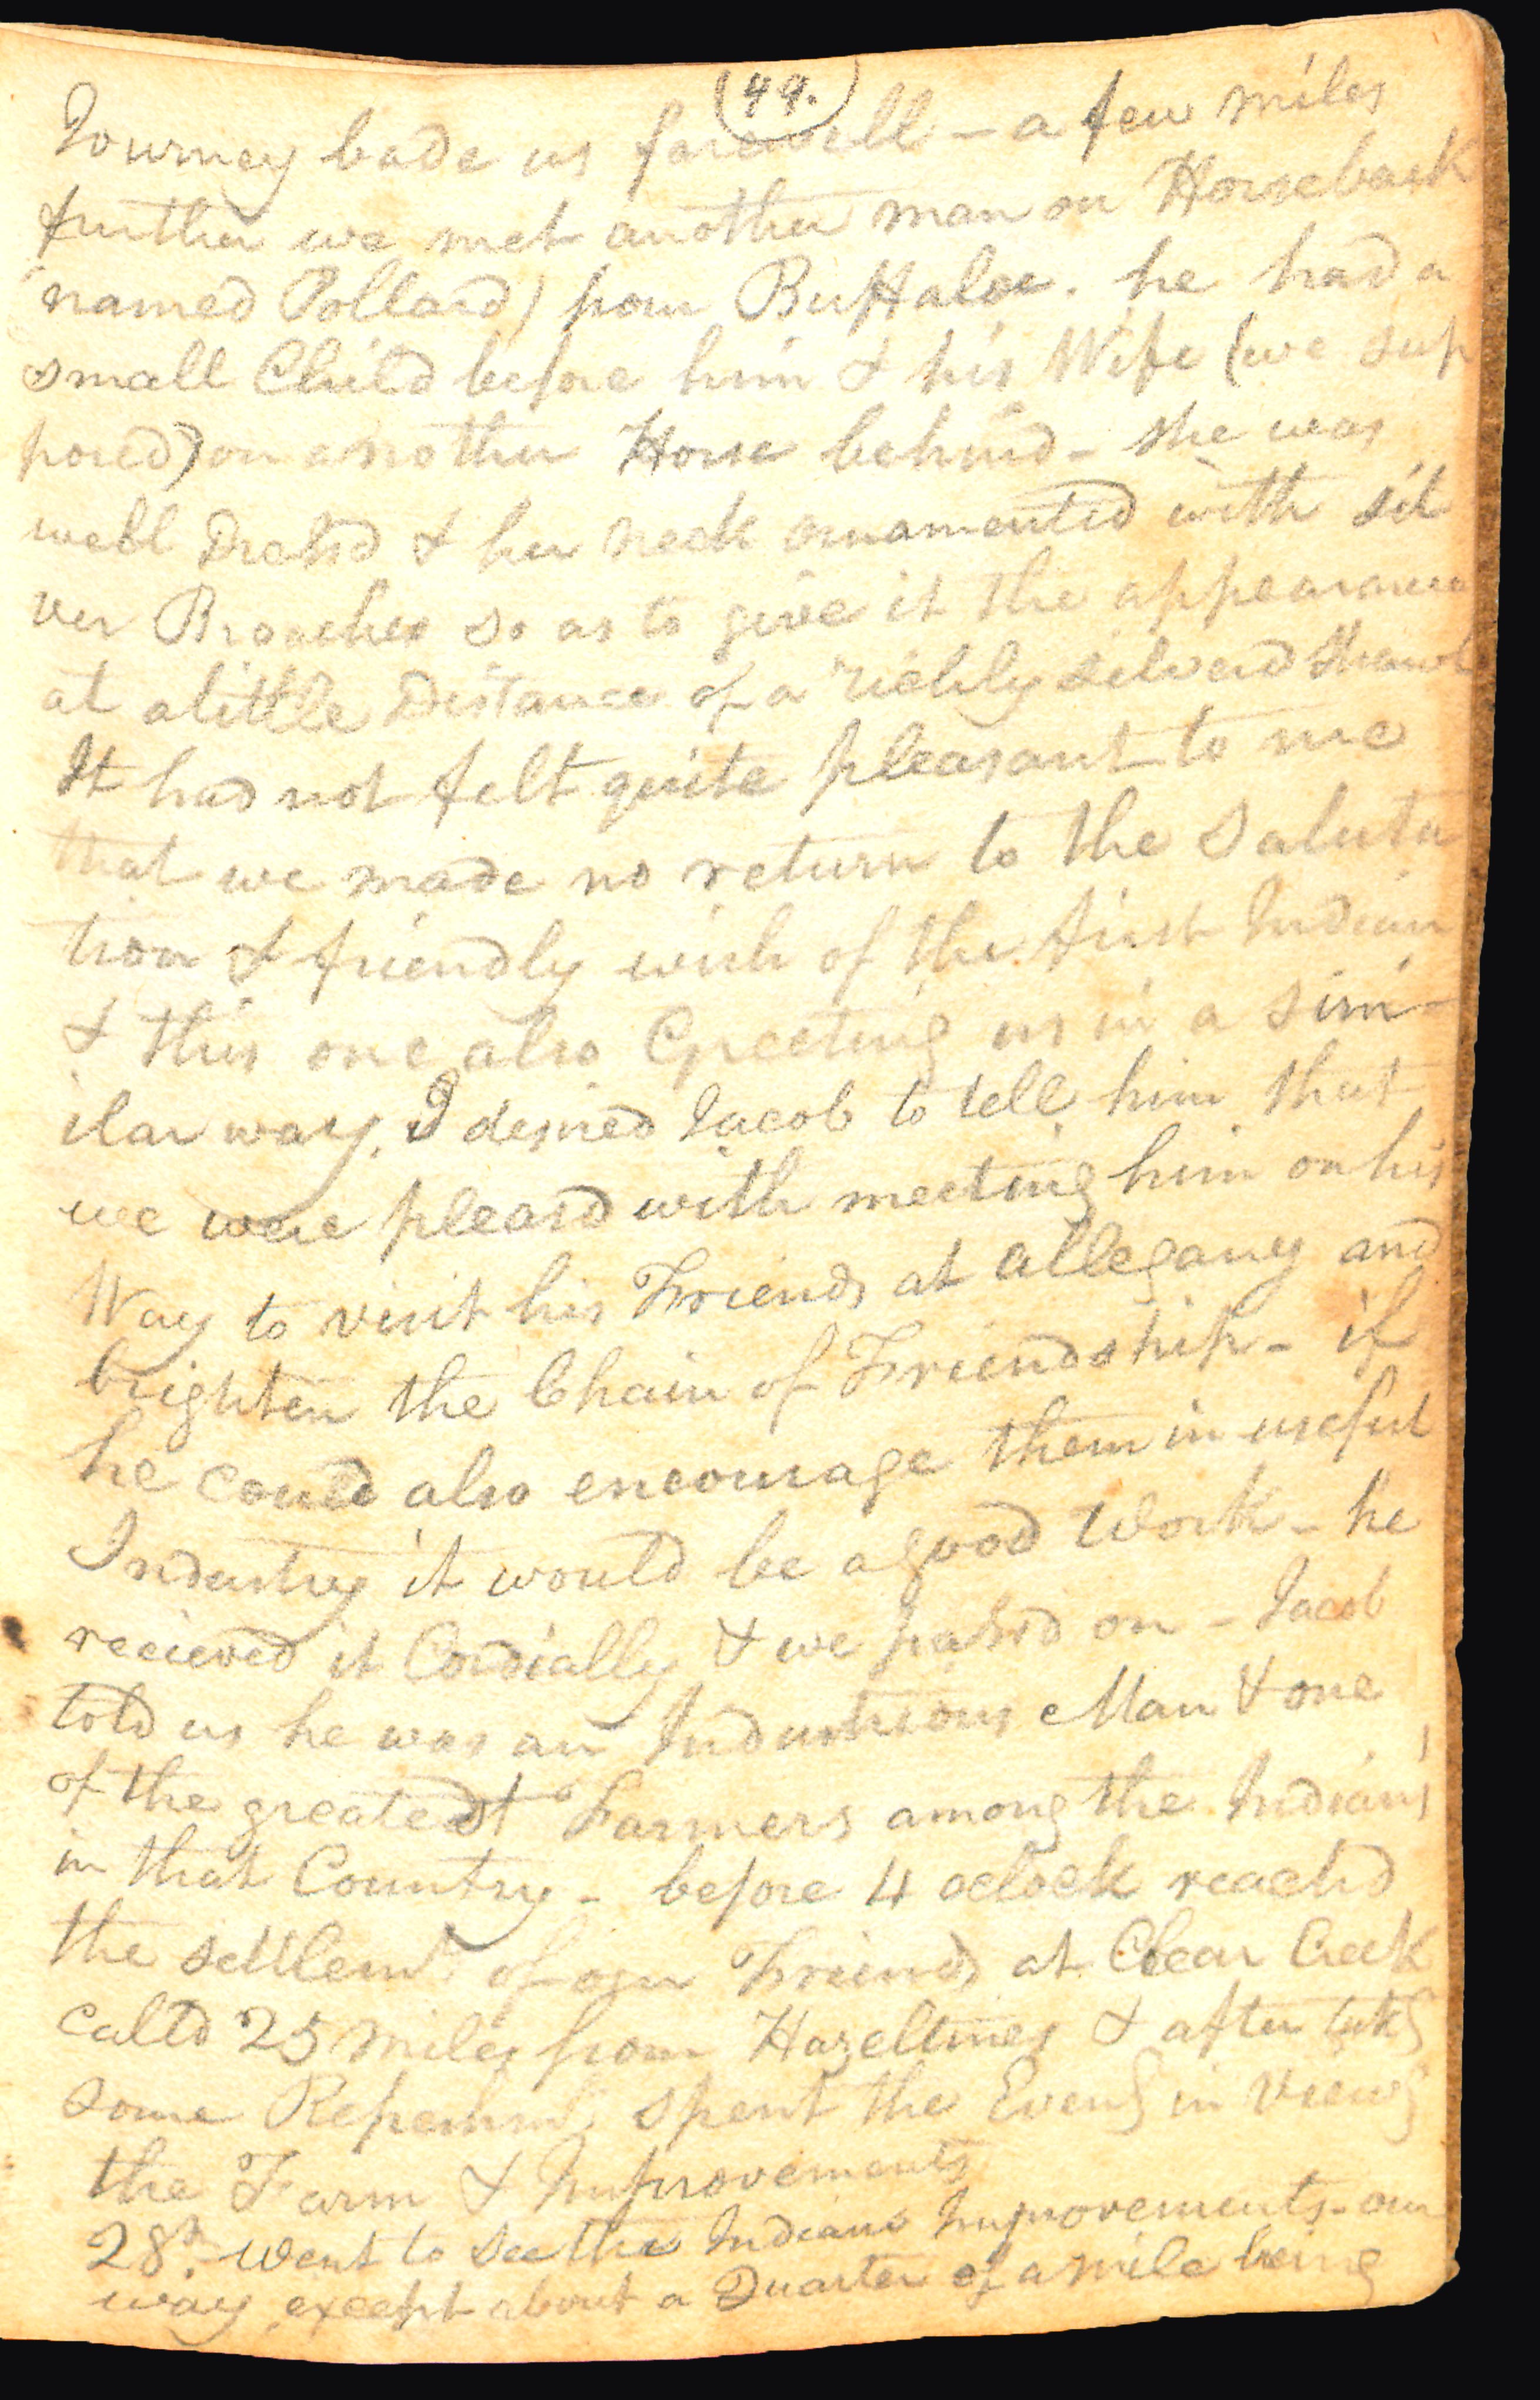 (49.)
Journey bade us farewell - a few miles
further we met another man on Horseback
(named Pollard) from Buffaloe. he had a
small Child before him & his Wife (we sup
posed) on another Horse behind - she was
well Dressd & her neck ornamented with sil
ver Broaches so as to give it the appearance
at a little Distance of a richly silverd Shawl
It had not felt quite pleasant to me
that we made no return to the Saluta
tion & friendly wish of the first Indian
& this one also Greeting us in a sim-
ilar way, I desired Jacob to tell him that
we were pleasd with meeting him on his
Way to visit his Friends at Allegany and
brighten the Chain of Friendship - if
he could also encourage them in useful
Industry it would be a good Work - he
recieved it Cordially & we passd on - Jacob
told us he was an Industrious Man & one
of the greatest Farmers among the Indians
in that Country - before 4 oclock reachd
the settlemt. of our Friends at Clear Creek
calld 25 miles from Hazeltines & after takg
some Refreshmt. spent the Eveng in Viewg
the Farm & Improvements
28th. Went to see the Indians Improvements - our
way, except about a Quarter of a mile being